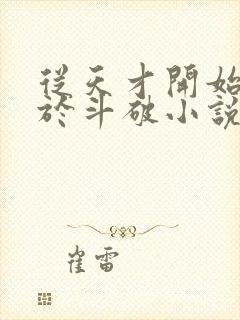 從天才開始
於斗破小說
崔雷